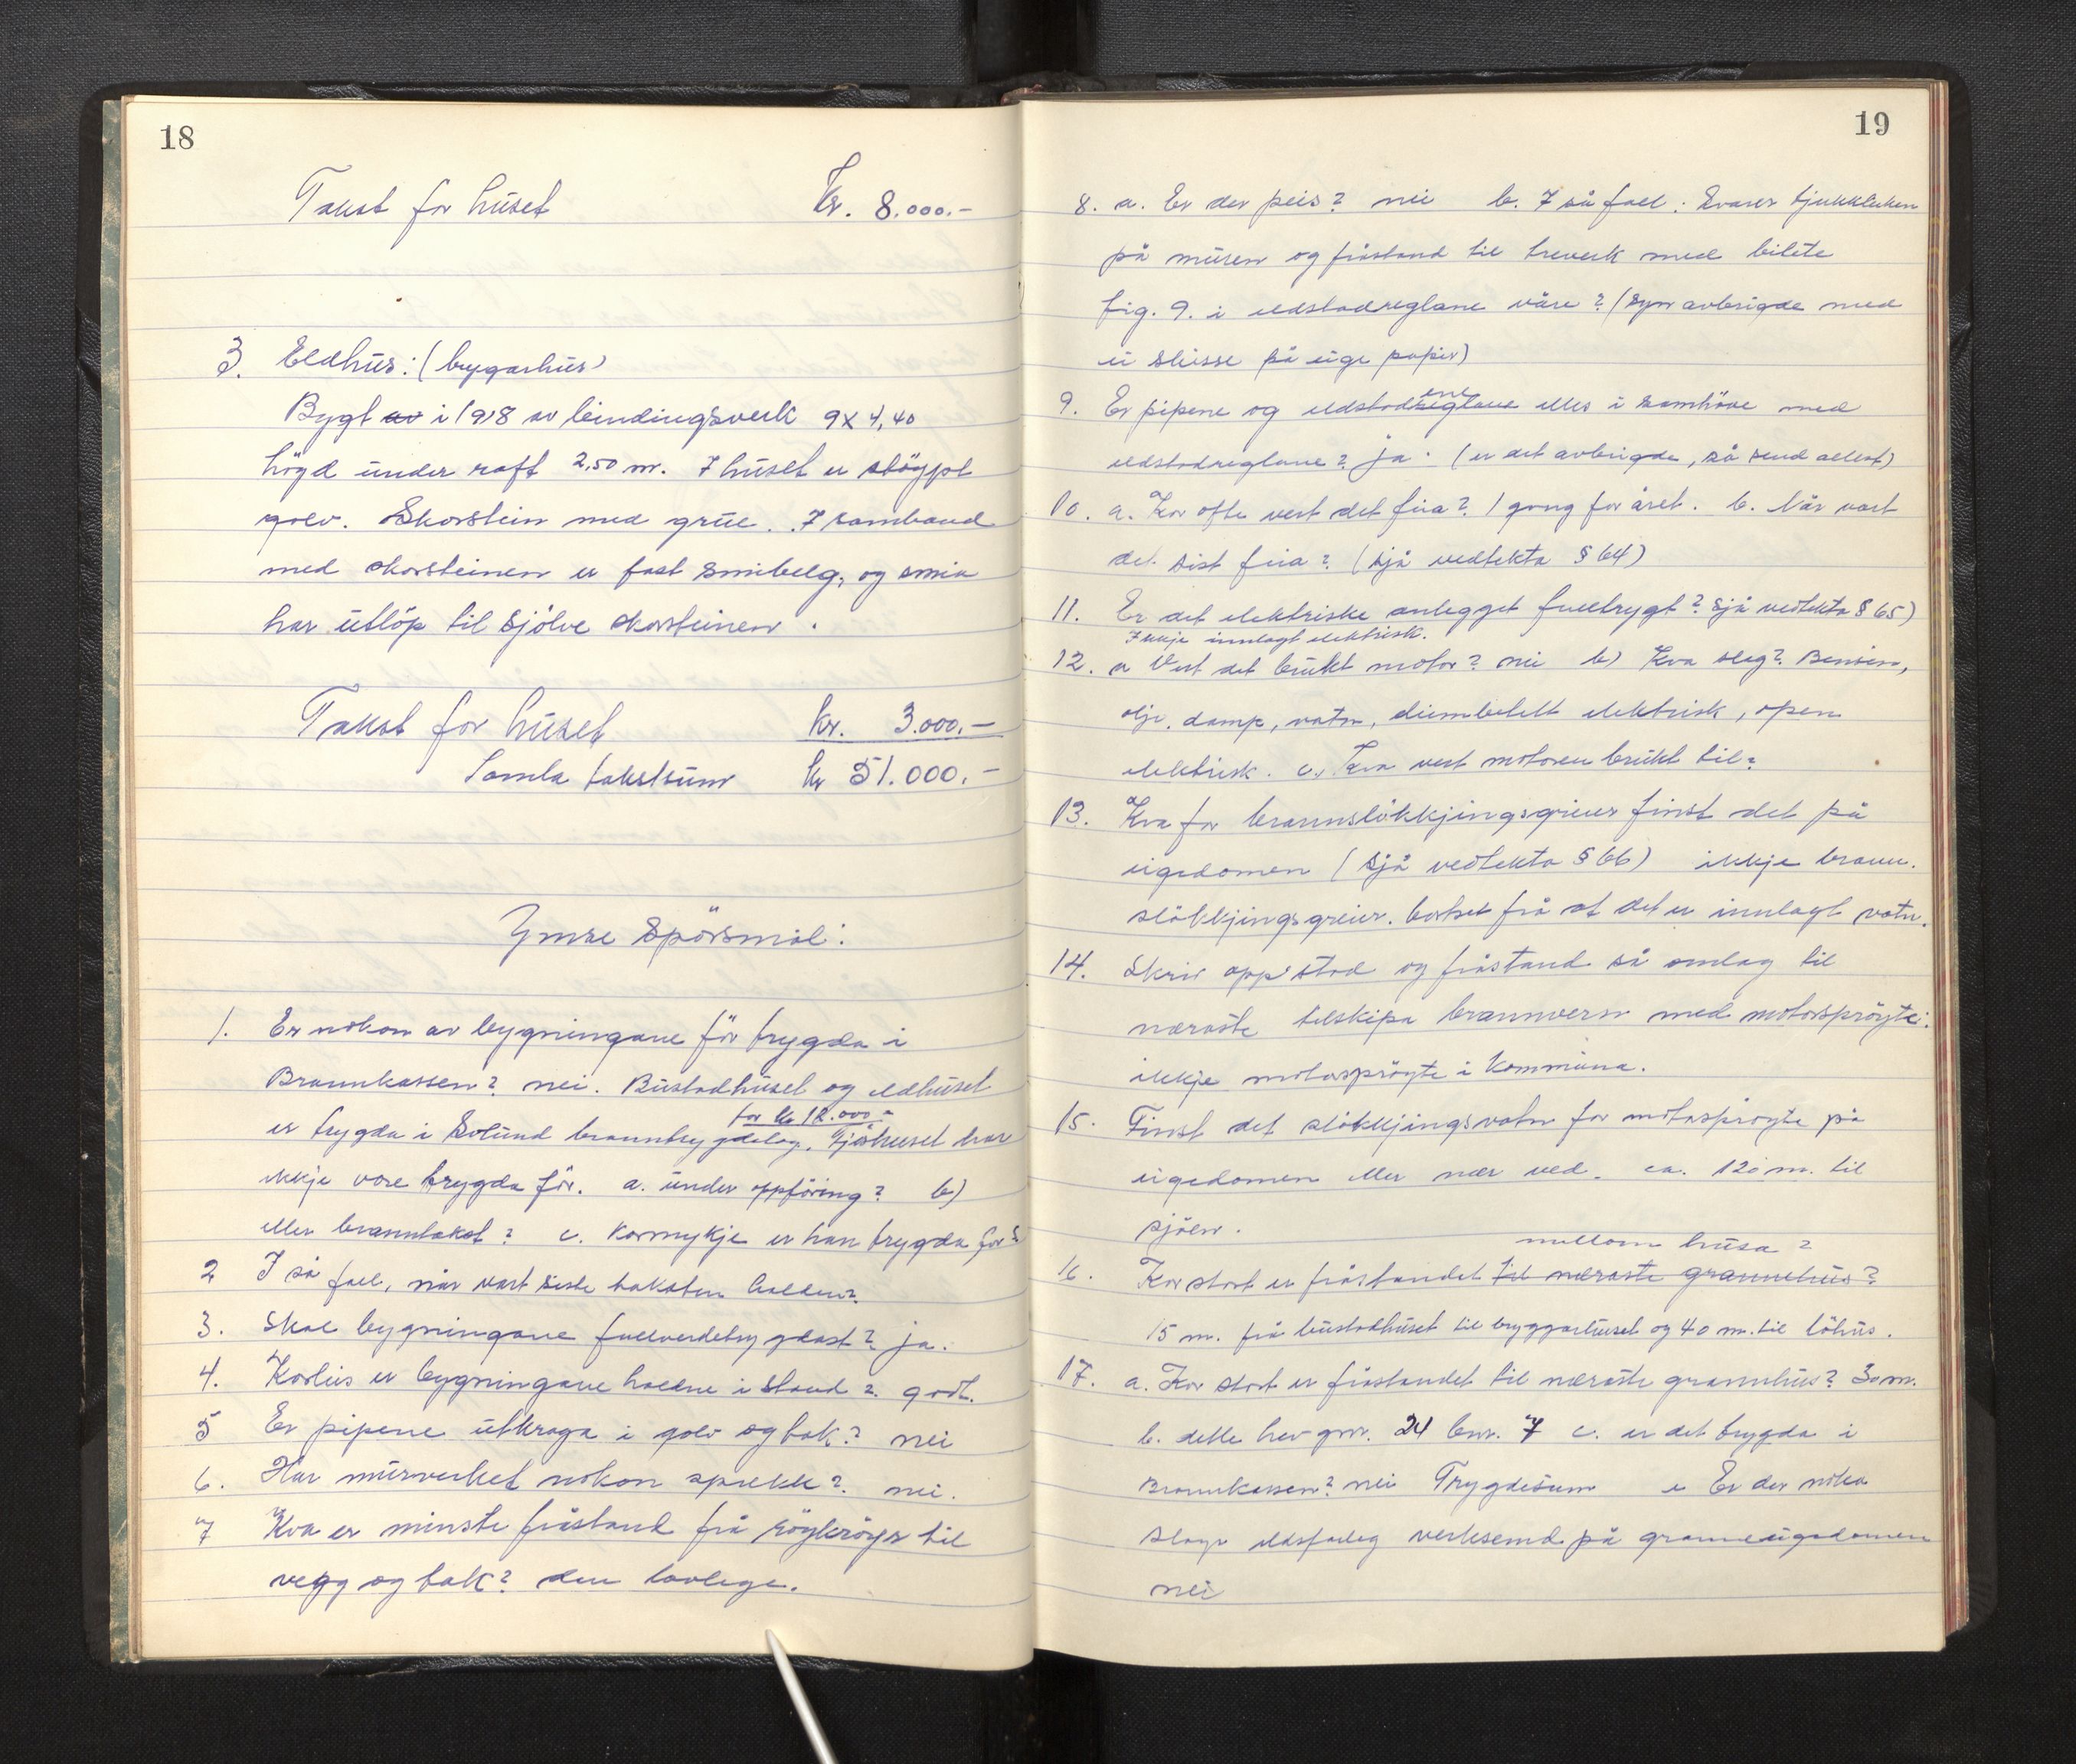 18
Takst for huset Kr. 8.000.-
3. Eldhus: (bryggarhus)
Bygt av i 1918 av bindingsverk 9 x 4,40
högd under raft 2,50 m. I huset er stöypt
golv. Skorstein med grue. I samband
med skorsteinen er fast smibelg, og smia
har utlöp til sjölve skorsteinen.
Takst for huset kr. 3.000.-
Samla takstsum kr 51.000.-
Ymse spörsmål:
1. Er nokon av bygningane för trygda i
Brannkassen? nei. Bustadhuset og eldhuset
for kr 12.000.-
er trygda i Solund branntrygdelag. Sjöhuset har
ikkje vore trygda för. a. under oppföring? b)
eller branntakst? c. kormykje er han trygda for?
2 I så fall, når vart siste taksten halden?
3. Skal bygningane fullverdetrygdast? ja.
4. Korleis er bygningane haldne i stand? godt.
5 Er pipene utkraga i golv og tak? nei
6. Har murverket nokon sprekk? nei.
7 Kva er minste fråstand frå röykröyr til
vegg og tak? den lovlege.
19
8. a. Er der peis? nei b. I så fall: Svarer tjukkleiken
på muren og fråstand til treverk med bilete
fig. 9. i eldstadreglane våre? (Syn avbrigde med
ei skisse på eige papir)
ene
9. Er pipene og eldstadreglane elles i samhöve med
eldstadreglane? ja. (er det avbrigde, så send attest)
10. a. Kor ofte vert det feia? 1 gong for året. b. Når vart
det sist feia? (sjå vedtekta § 64)
11. Er det elektriske anlegget fullbrygt? sjå vedtekta § 65)
Ikkje innlagt elektrisk.
12. a Vert det brukt motor? nei b) Kva slag? Bensin,
olje, damp, vatn, elektrisk, open
elektrisk. c. Kva vert motoren brukt til?
13. Kva for brannslökkjingsgreier finst det på
eigedomen (sjå vedtekta § 66) ikkje brann.
slökkjingsgreier. bortset frå at det er innlagt vatn.
14. Skriv opp stad og fråstand så omlag til
næraste tilskipa brannvern med motorspröyte:
ikkje motorspröyte i kommuna.
15. Finst det slökkjingsvatn for motorspröyte på
eigedomen eller nær ved. ca. 120 m. til
sjöen.
mellom husa?
16. Kor stort er fråstandet til næraste grannehus?
15 m. frå bustadhuset til bryggarhuset og 40 m. til löhus.
17. a. Kor stort er fråstandet til næraste grannhus? 30 m.
b. dette hev gnr. 24 bnr. 7 c. er det trygda i
Brannkassen? nei Trygdesum e Er der noka
slags eldsfarleg verksemd på granneeigedomen
nei